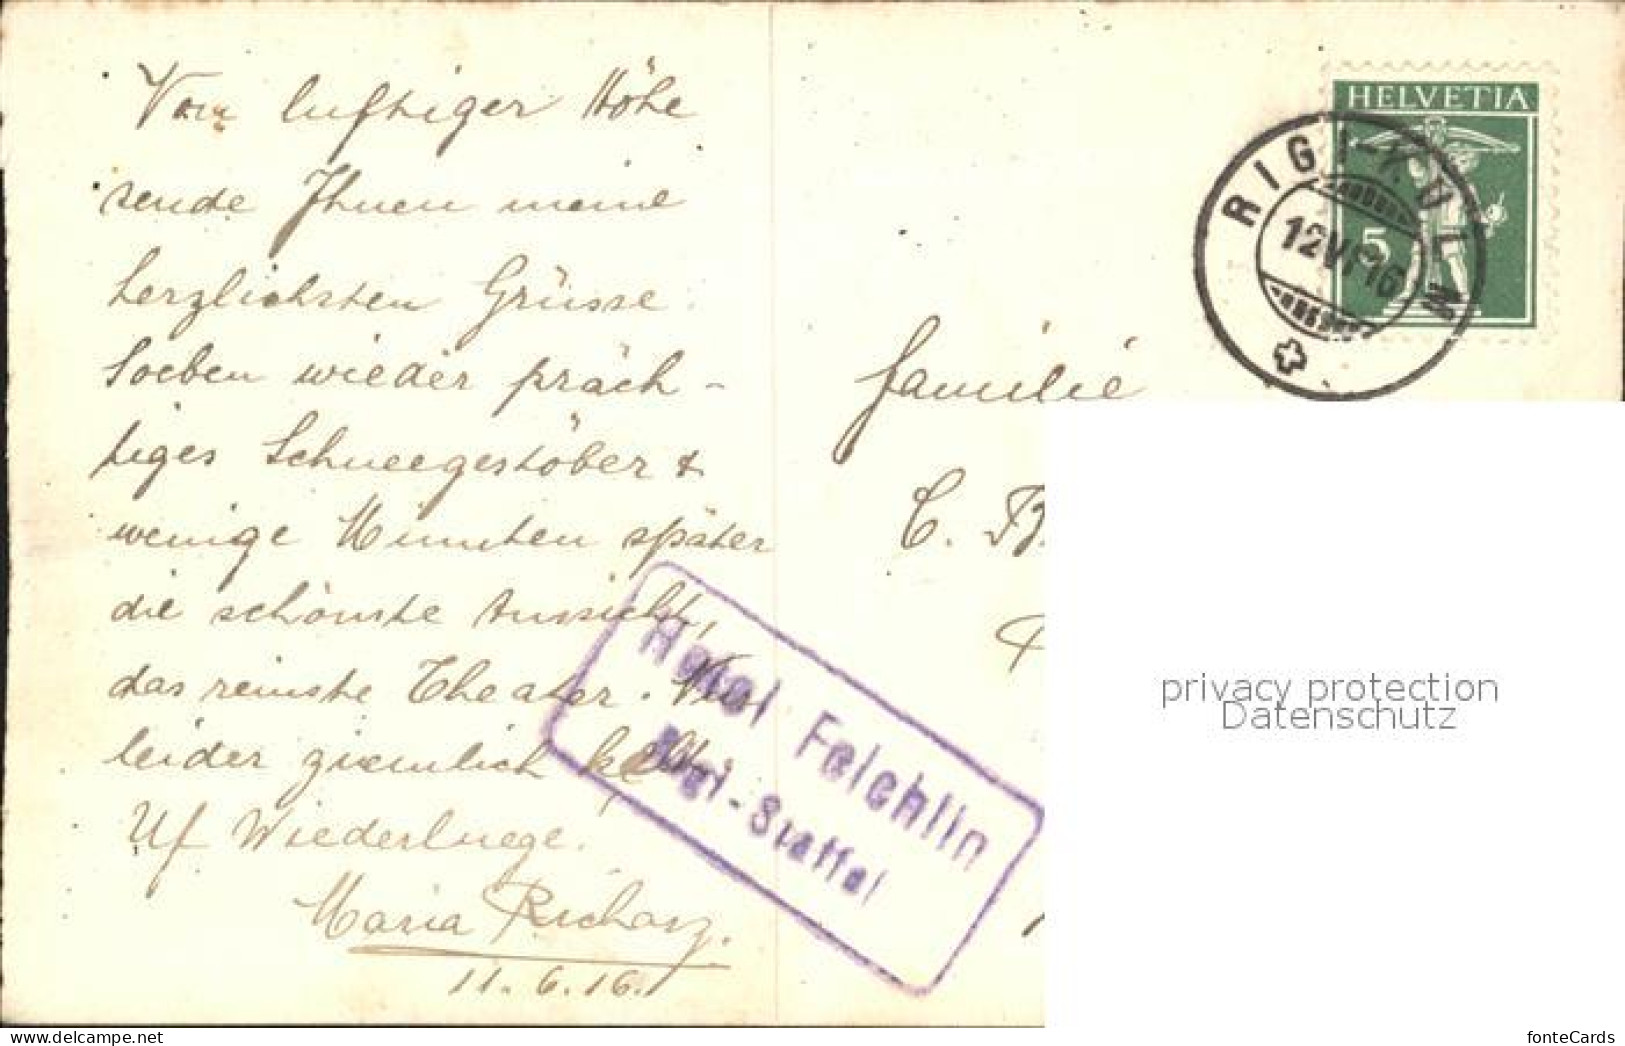 Von luftiger Höhe
sende Ihnen meine
herzlichsten Grüsse.
Soeben wieder präch-
tiges Schneegestöber &
wenige Minuten später
die schönste Aussicht,
das reinste Theater. Nur
leider ziemlich kalt.
Uf Wiederluege.
Maria Richarz.
11. 6. 16.
HELVETIA
5
RIGI-KULM
12 VI 16
Familie
C. B
Hotel Felchlin
Rigi-Staffel
privacy protection
Datenschutz
www.delcampe.net
fonteCards